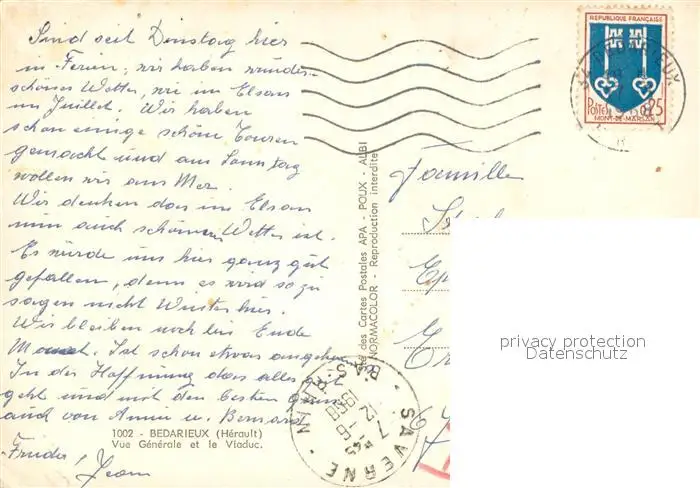 Sind seit Dienstag hier
in Ferien, wir haben wunder-
schönes Wetter, wie im Elsass
im Juillet. Wir haben
schon einige schöne Touren
gemacht und am Sonntag
wollen wir am Mer.
Wir denken dass im Elsass
nun auch schönen Wetter ist.
Es würde uns hier ganz gut
gefallen, denn es wird so zu
sagen nicht Winter hier.
Wir bleiben noch bis Ende
Monat. Ist schon etwas angenehm
In der Hoffnung dass alles gut
geht und mit den besten
auch von Annie u. Bernard
Jean
1002 - BEDARIEUX (Hérault)
Vue Générale et le Viaduc.
des Cartes Postales APA - POUX - ALBI
NORMACOLOR - Reproduction interdite
REPUBLIQUE FRANÇAISE
POSTES 0,25
MONT-DE-MARSAN
Famille
SAVERNE - B. RHIN
7 -2 1968
privacy protection
Datenschutz